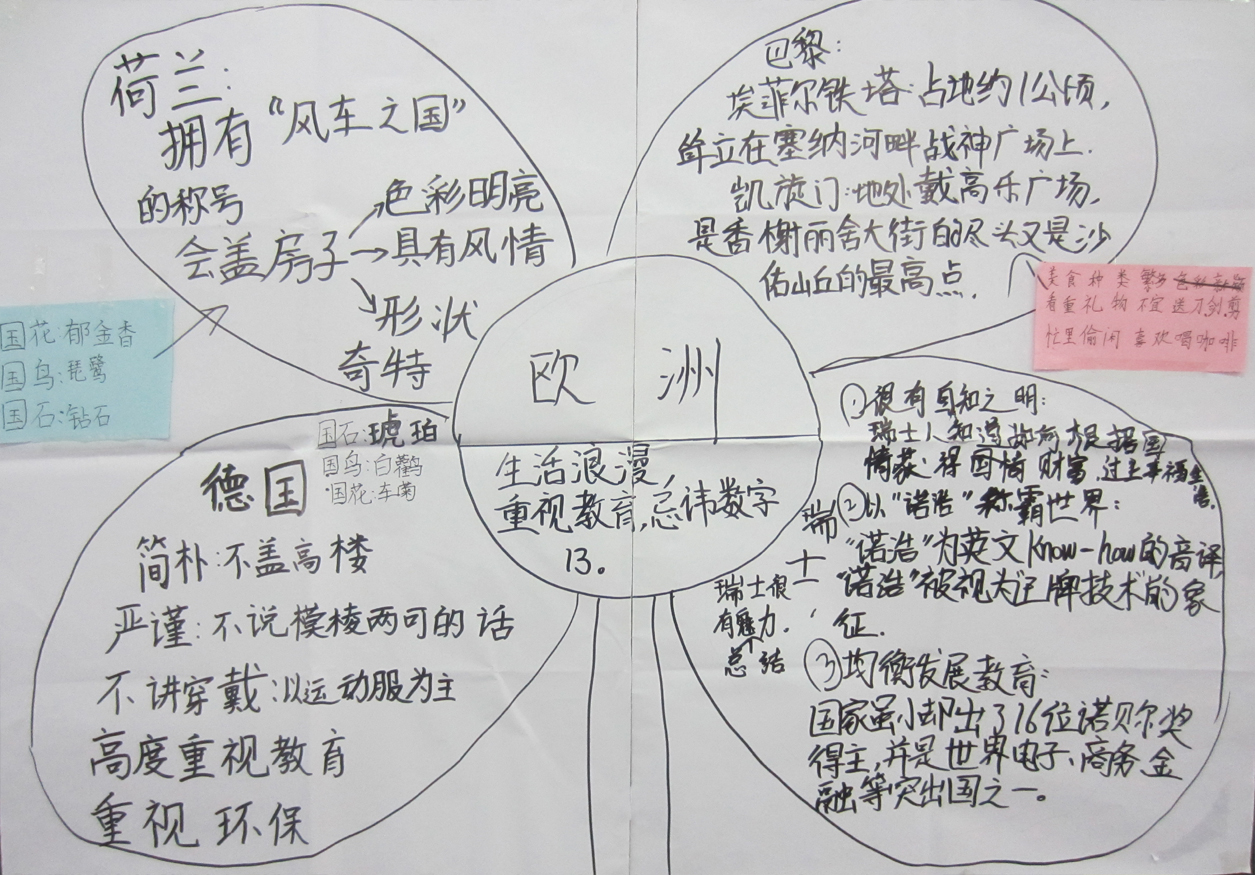 荷兰:
拥有“风车之国”
的称号
会盖房子→色彩明亮
→具有风情
形状
奇特
国花:郁金香
国鸟:琵鹭
国石:钻石
巴黎:
埃菲尔铁塔:占地约1公顷,
耸立在塞纳河畔战神广场上.
凯旋门:地处戴高乐广场,
是香榭丽舍大街的尽头又是沙
佑山丘的最高点.
美食种类繁多
看重礼物不宜送刀剑剪
忙里偷闲喜欢喝咖啡
欧洲
生活浪漫,
重视教育,忌讳数字
13。
德国
国石:琥珀
国鸟:白鹳
国花:车菊
简朴:不盖高楼
严谨:不说模棱两可的话
不讲穿戴:以运动服为主
高度重视教育
重视环保
瑞士
①很有自知之明:
瑞士人知道如何根据国
情获得国情财富,过上幸福生活.
②以“诺浩”称霸世界:
“诺浩”为英文know-how的音译
“诺浩”被视为王牌技术的象
征.
③均衡发展教育:
国家虽小却出了16位诺贝尔奖
得主,并是世界电子、商务、金
融等突出国之一。
瑞士很
有魅力.
总结